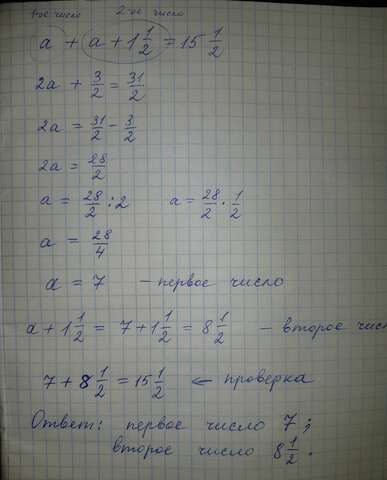 1-ое число 2-ое число
a + a + 1 1/2 = 15 1/2
2a + 3/2 = 31/2
2a = 31/2 - 3/2
2a = 28/2
a = 28/2 : 2 a = 28/2 · 1/2
a = 28/4
a = 7 - первое число
a + 1 1/2 = 7 + 1 1/2 = 8 1/2 - второе числ
7 + 8 1/2 = 15 1/2 ← проверка
Ответ: первое число 7;
второе число 8 1/2.